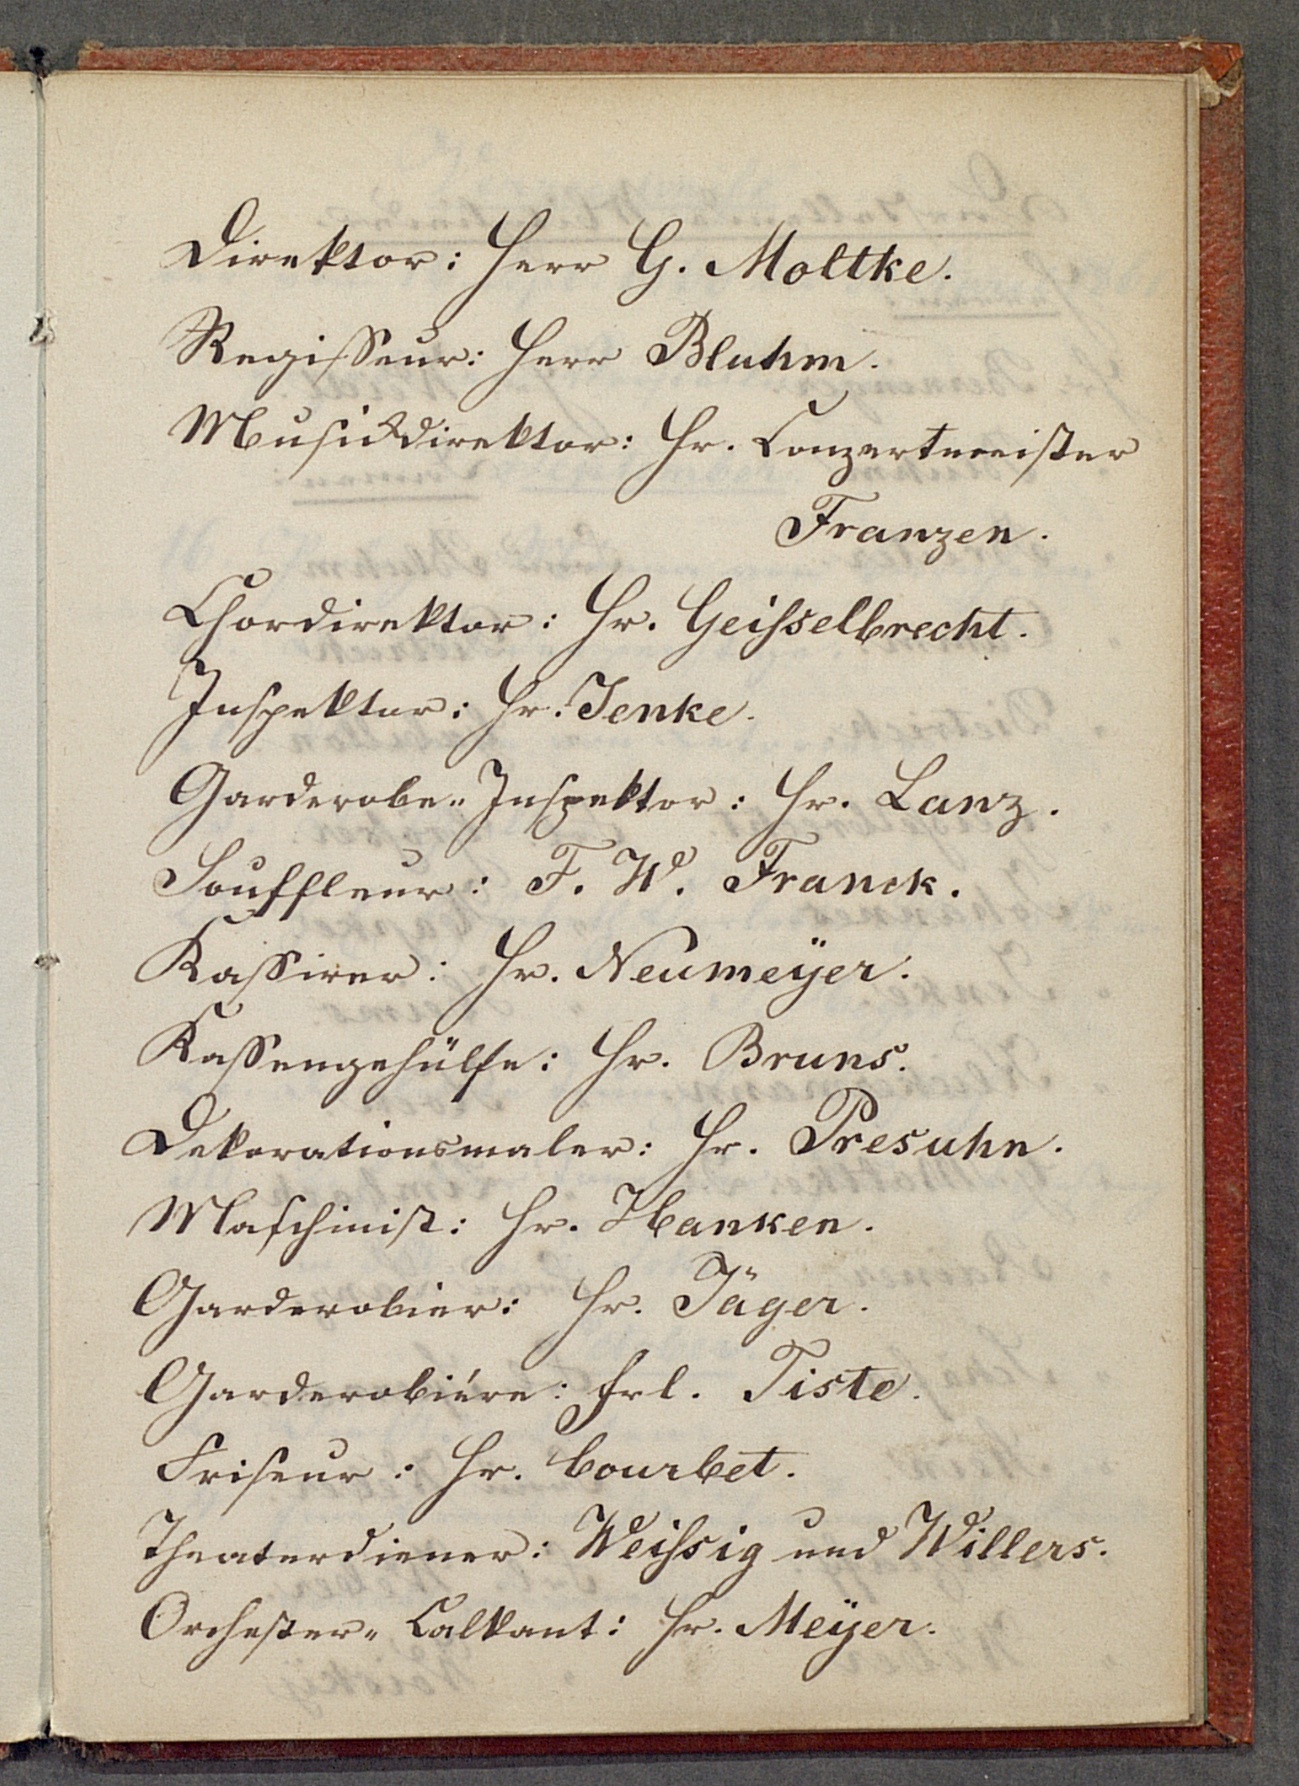 Direktor: Herr G. Moltke.
Regisseur: Herr Bluhm.
Musikdirektor: Hr. Conzertmeister
Franzen.
Chordirektor: Hr. Geißelbrecht.
Inspektor: Hr. Jenke.
Garderobe-Inspektor: Hr. Lanz.
Souffleur: F. W. Franck.
Kassirer: Hr. Neumeÿer.
Kassengehülfe: Hr. Bruns.
Dekorationsmaler: Hr. Presuhn.
Maschinist: Hr. Hanken.
Garderobier: Hr. Jäger.
Garderobiére: Frl. Tiste.
Friseur: Hr. Courbet.
Theaterdiener: Weißig und Willers.
Orchester-Calkant: Hr. Meÿer.